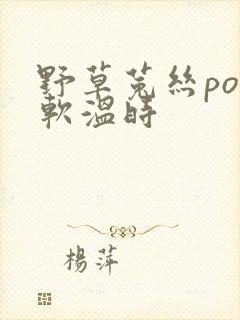 野草菟絲po
軟溫時
楊萍